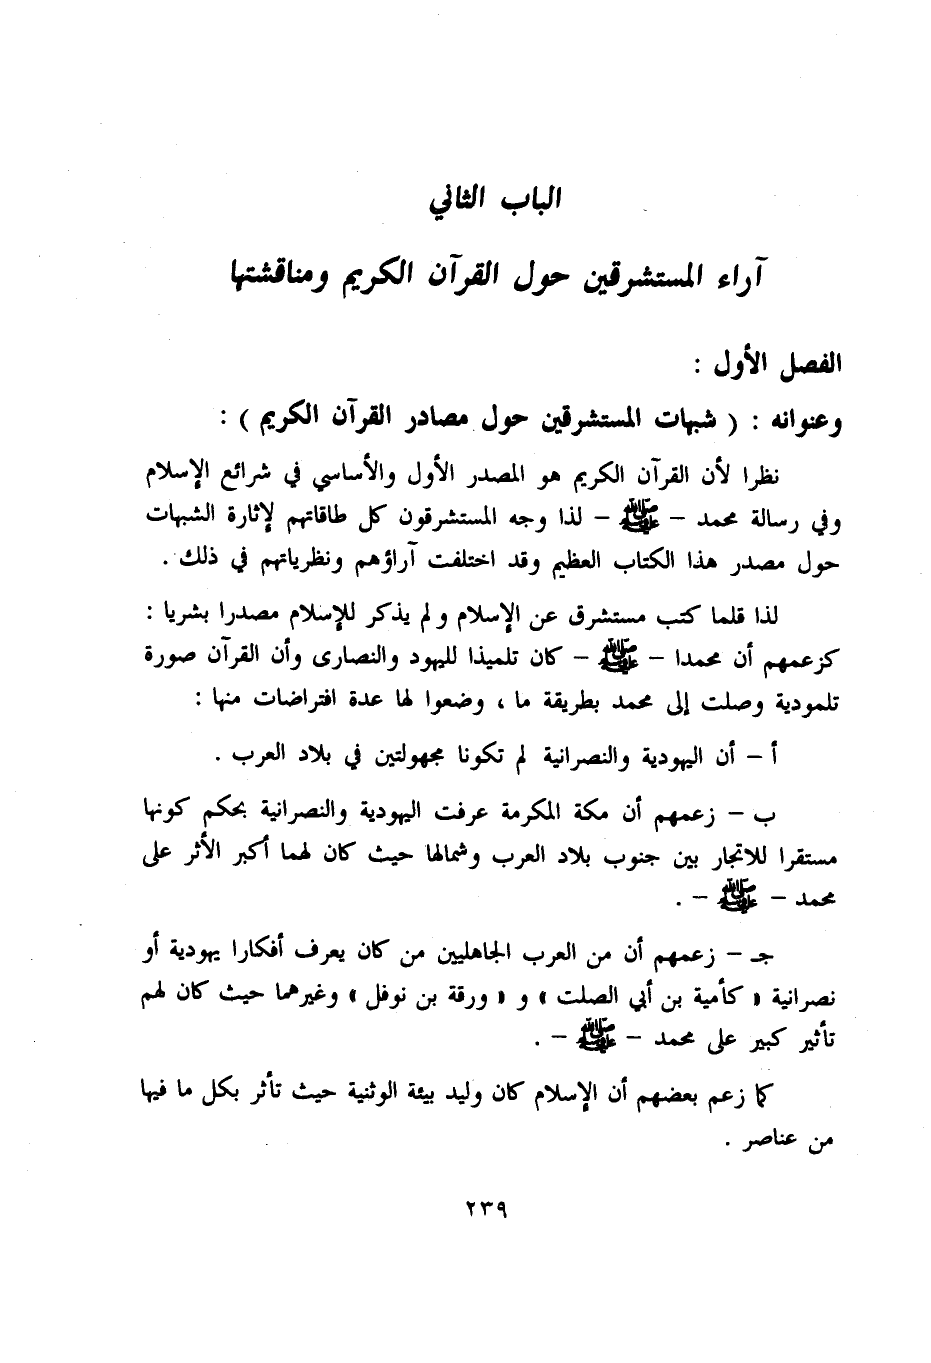 الباب الثاني
آراء المستشرقين حول القرآن الكريم ومناقشتها
الفصل الأول :
وعنوانه : ( شبهات المستشرقين حول مصادر القرآن الكريم ) :
نظرا لأن القرآن الكريم هو المصدر الأول والأساسي في شرائع الإسلام
وفي رسالة محمد - ﷺ - لذا وجه المستشرقون كل طاقاتهم لإثارة الشبهات
حول مصدر هذا الكتاب العظيم وقد اختلفت آراؤهم ونظرياتهم في ذلك .
لذا قلما كتب مستشرق عن الإسلام ولم يذكر للإسلام مصدرا بشريا :
كزعمهم أن محمدا - ﷺ - كان تلميذا لليهود والنصارى وأن القرآن صورة
تلمودية وصلت إلى محمد بطريقة ما ، وضعوا لها عدة افتراضات منها :
أ - أن اليهودية والنصرانية لم تكونا مجهولتين في بلاد العرب .
ب - زعمهم أن مكة المكرمة عرفت اليهودية والنصرانية بحكم كونها
مستقرا للاتجار بين جنوب بلاد العرب وشمالها حيث كان لهما أكبر الأثر على
محمد - ﷺ - .
جـ - زعمهم أن من العرب الجاهليين من كان يعرف أفكارا يهودية أو
نصرانية « كأمية بن أبي الصلت » و « ورقة بن نوفل » وغيرهما حيث كان لهم
تأثير كبير على محمد - ﷺ - .
كما زعم بعضهم أن الإسلام كان وليد بيئة الوثنية حيث تأثر بكل ما فيها
من عناصر .
٢٣٩